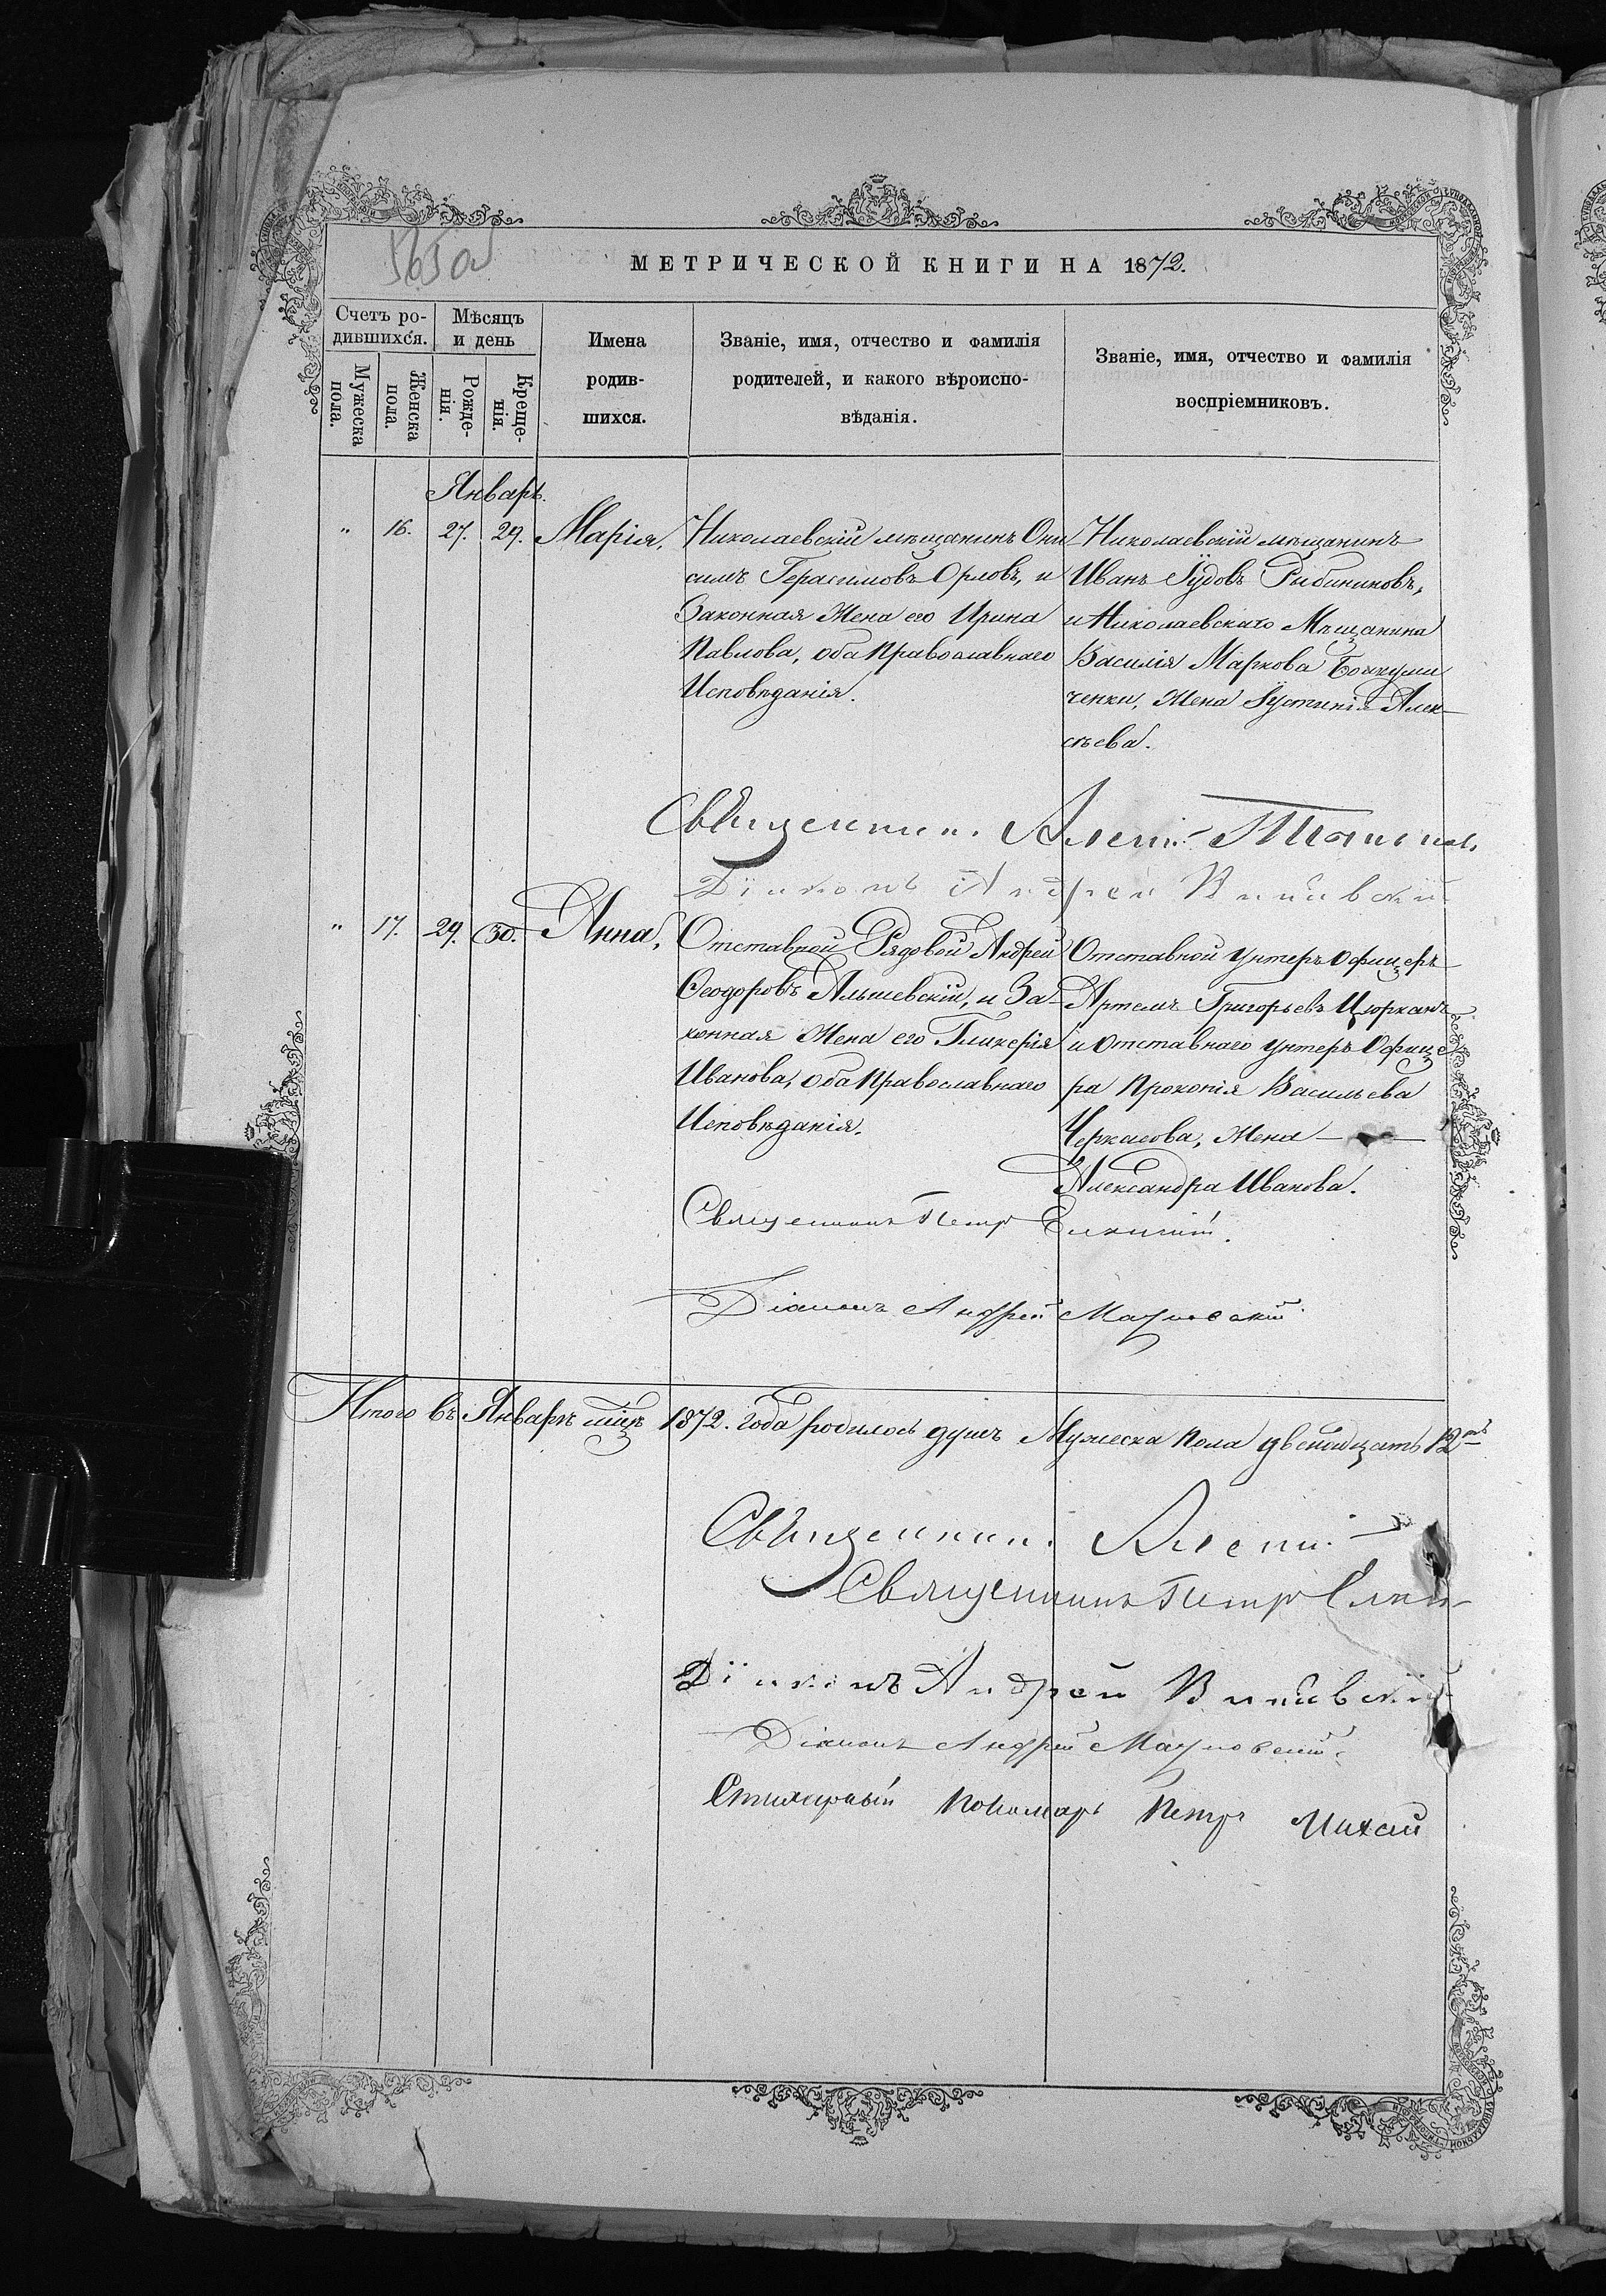 МЕТРИЧЕСКОЙ КНИГИ НА 1872.
Счетъ ро-
дившихся.
Мѣсяцъ
и день
Мужеска
пола.
Женска
пола.
Рожде-
нія.
Креще-
нія.
Имена
родив-
шихся.
Званіе, имя, отчество и фамилія
родителей, и какого вѣроиспо-
вѣданія.
Званіе, имя, отчество и фамилія
воспріемниковъ.
Январь.
" 16. 27. 29. Марія,
Николаевскій мѣщанинъ Они
симъ Герасимовъ Орловъ, и
Законная Жена его Ирина
Павлова, оба Православнаго
Исповѣданія.
Николаевскій мѣщанинъ
Иванъ Іудовъ
и Николаевскаго Мѣщанина
Василія Маркова
ченки, Жена Іустинія Алек-
сѣева.
Священник. Алексій
Діяконъ Андрей
" 17. 29. 30. Анна,
Отставной Рядовой Андрей
Ѳеодоровъ Альшевскій, и За-
конная Жена его Гликерія
Иванова, оба Православнаго
Исповѣданія.
Отставной Унтеръ Офицеръ
Артемъ Григорьевъ Цюрканъ
и Отставнаго Унтеръ Офице
ра Прокопія Васильева
Черкасова, Жена
Александра Иванова.
Священникъ Петр
Діаконъ Андрей
Итого въ Январѣ мцѣ 1872. года родилось душъ Мужеска пола двенадцать 12ть
Священник. Алексій
Священникъ Петр
Діяконъ Андрей
Діаконъ Андрей
Стихарный Пономарь Петръ Михай